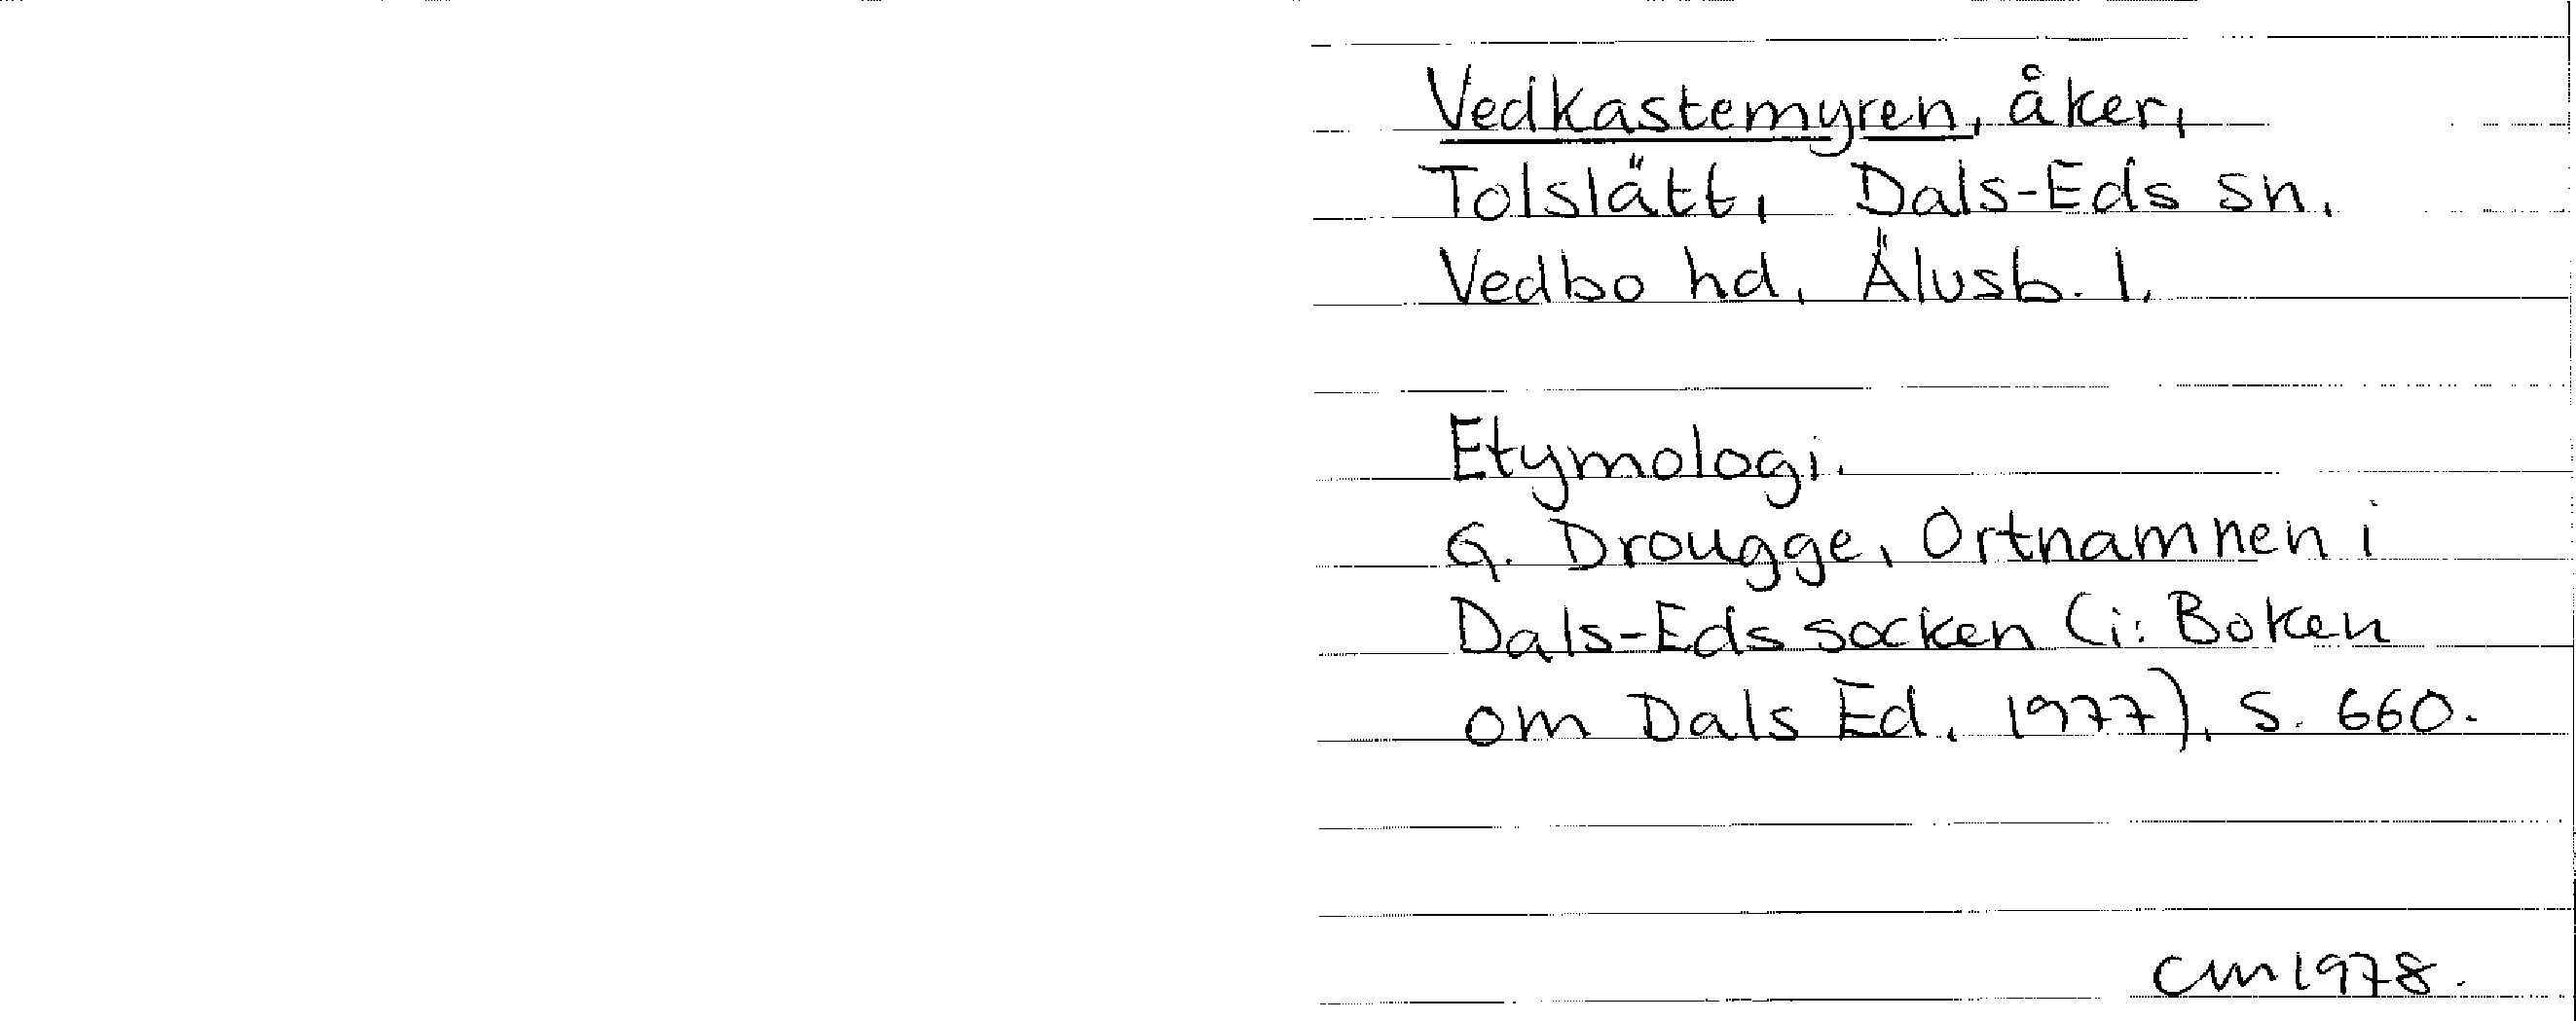 Vedkastemyren, åker,
Tolslätt, Dals-Eds sn,
Vedbo hd, Älvsb. l.
Etymologi.
G. Drougge, Ortnamnen i
Dals-Eds socken (i: Boken
om Dals Ed, 1977), s. 660.
CM 1978.